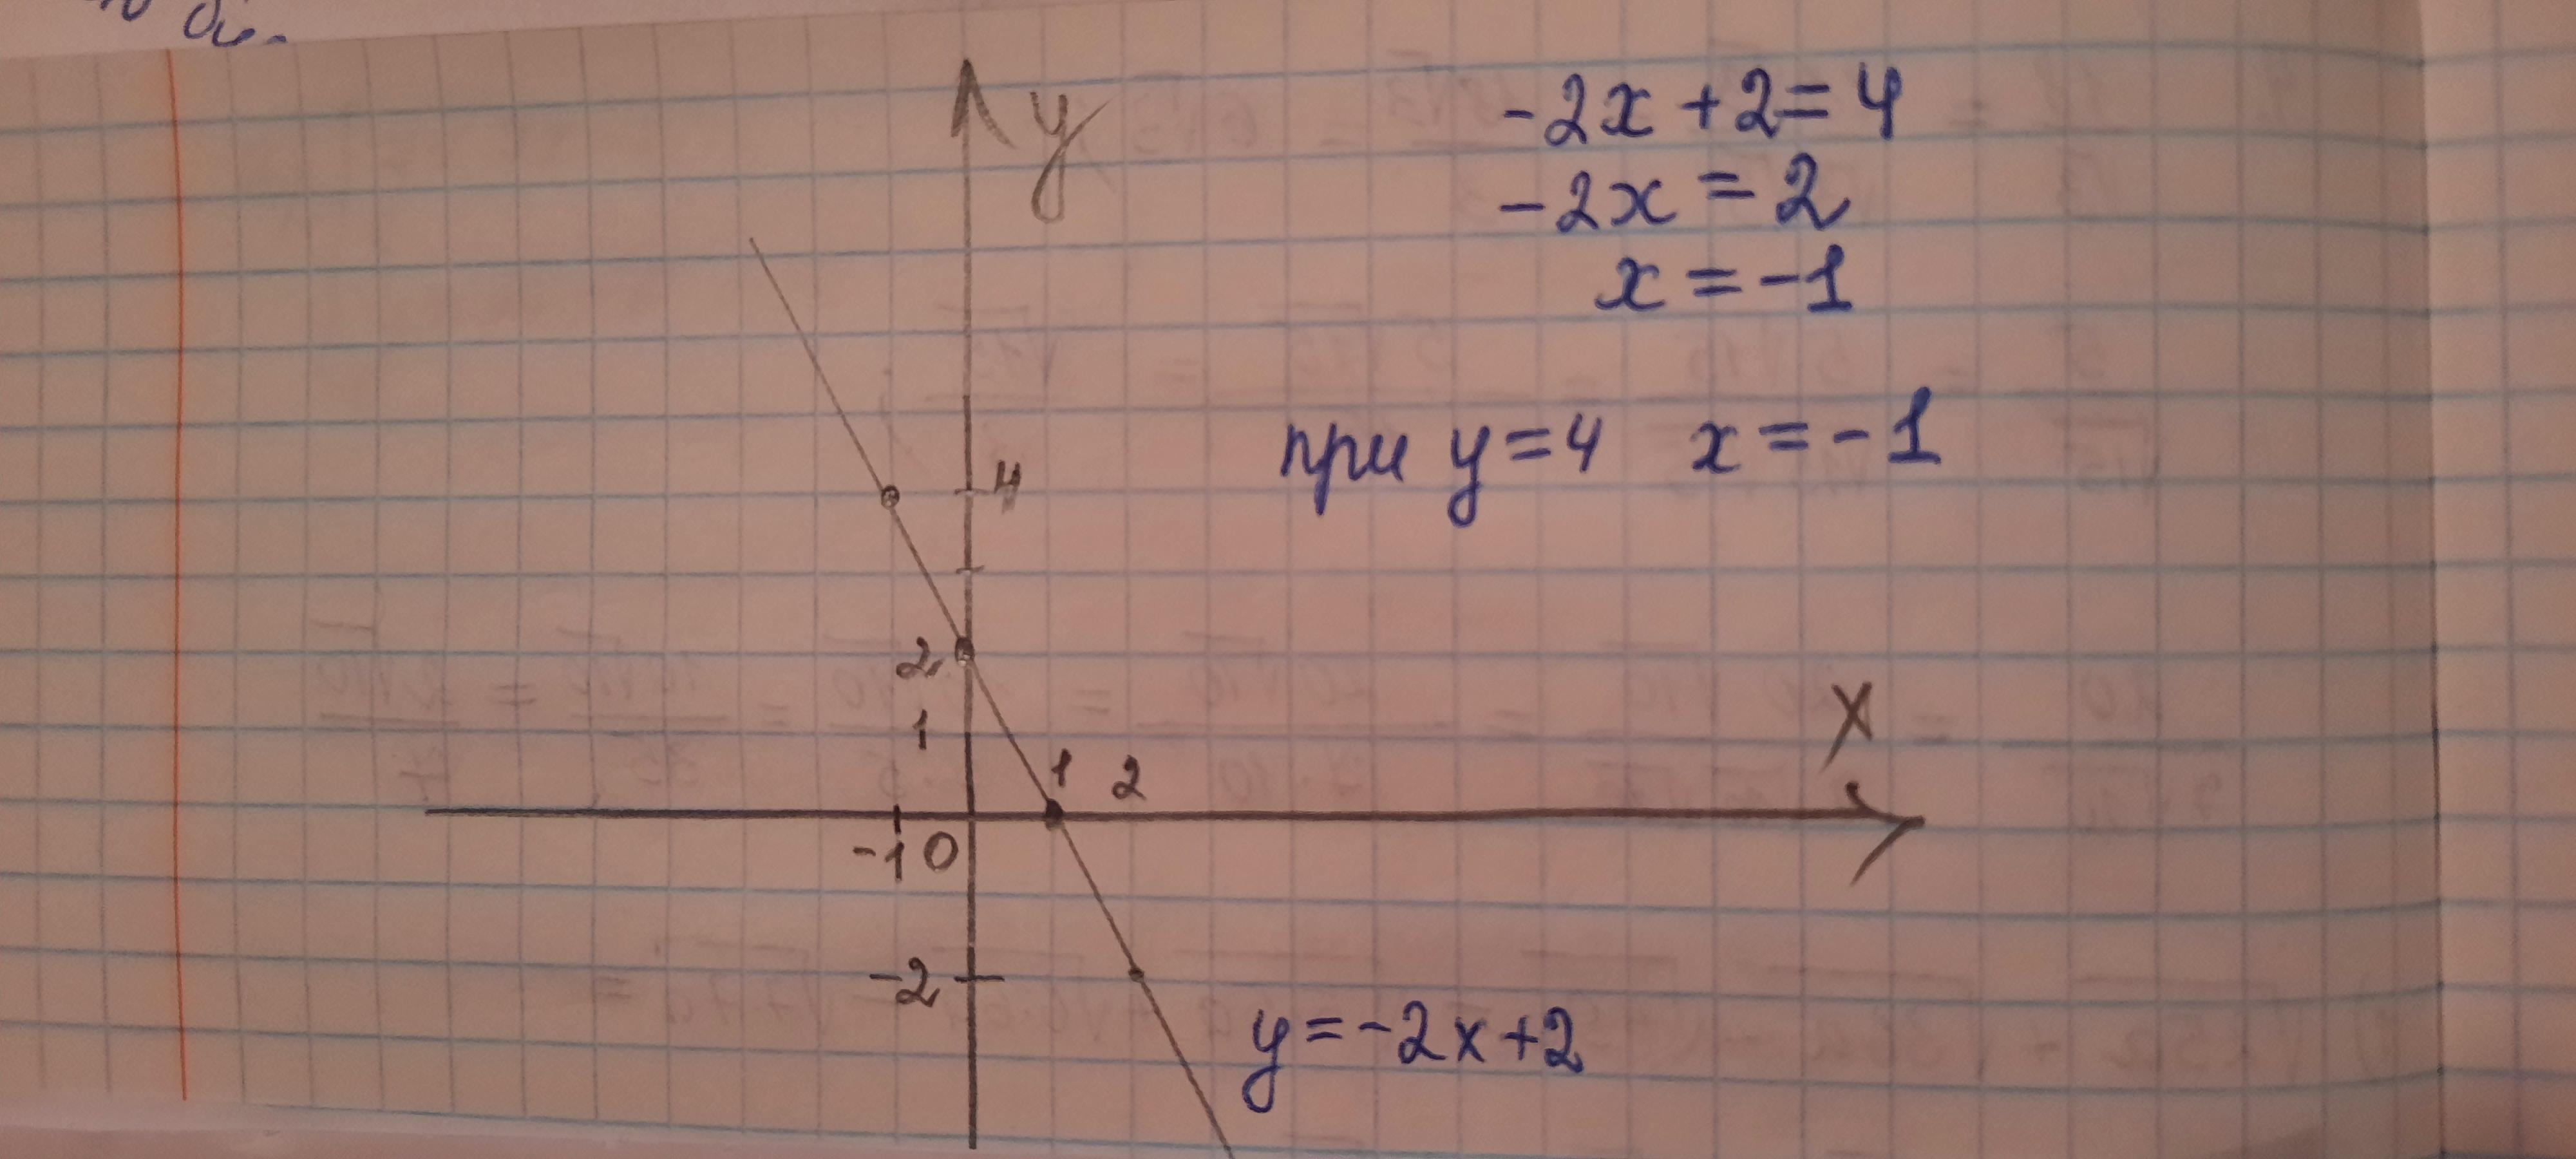 y
-2x + 2 = 4
-2x = 2
x = -1
при y = 4 x = -1
4
2
1
1 2
x
-1 0
-2
y = -2x + 2